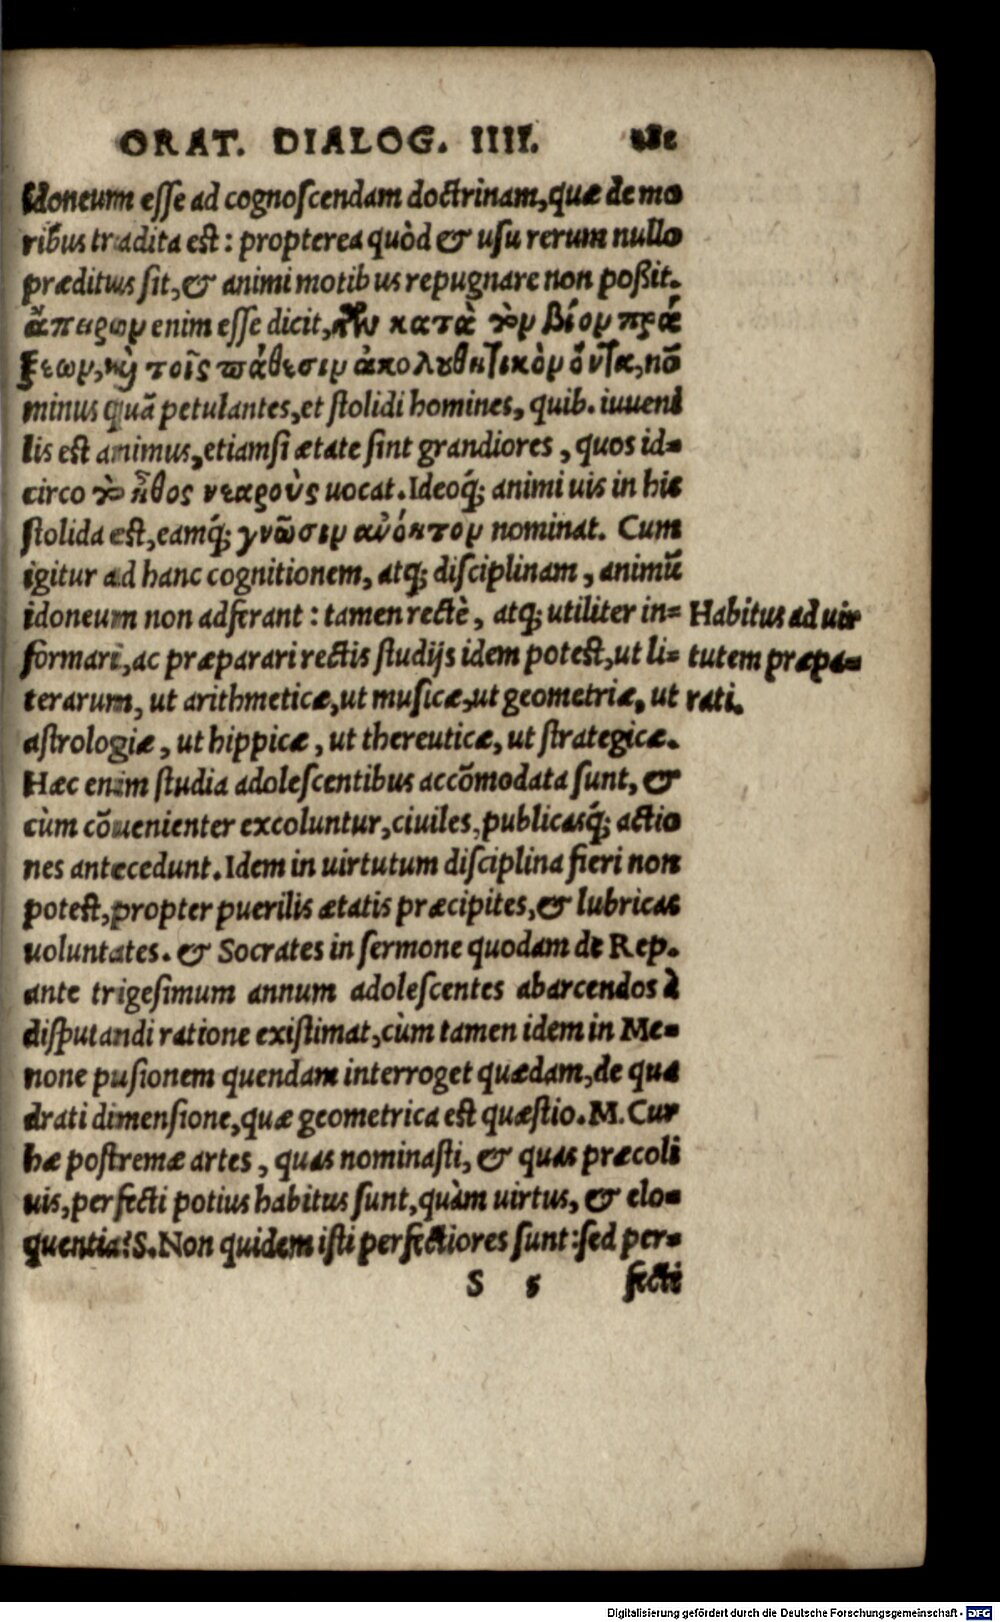 ORAT. DIALOG. IIII. 281
idoneum esse ad cognoscendam doctrinam, quæ de mo
ribus tradita est: propterea quòd & usu rerum nullo
præditus sit, & animi motibus repugnare non poßit.
ἄπειρον enim esse dicit, τῶν κατὰ τὸν βίον πρά
ξεων, καὶ τοῖς πάθεσιν ἀκολουθητικὸν ὄντα, nō
minus quā petulantes, et stolidi homines, quib. iuueni
lis est animus, etiamsi ætate sint grandiores, quos id=
circo τὸ ἦθος νεαροὺς uocat. Ideoq́; animi uis in his
stolida est, eamq́; γνῶσιν ἀνόητον nominat. Cum
igitur ad hanc cognitionem, atq; disciplinam, animū
idoneum non adferant: tamen rectè, atq; utiliter in=
formari, ac præparari rectis studijs idem potest, ut li=
terarum, ut arithmeticæ, ut musicæ, ut geometriæ, ut
astrologiæ, ut hippicæ, ut thereuticæ, ut strategicæ.
Hæc enim studia adolescentibus accōmodata sunt, &
cùm cōuenienter excoluntur, ciuiles, publicasq́; actio
nes antecedunt. Idem in uirtutum disciplina fieri non
potest, propter puerilis ætatis præcipites, & lubricas
uoluntates. & Socrates in sermone quodam de Rep.
ante trigesimum annum adolescentes abarcendos à
disputandi ratione existimat, cùm tamen idem in Me=
none pusionem quendam interroget quædam, de qua
drati dimensione, quæ geometrica est quæstio. M. Cur
hæ postremæ artes, quas nominasti, & quas præcoli
uis, perfecti potius habitus sunt, quàm uirtus, & elo=
quentia? S. Non quidem isti perfectiores sunt: sed per=
S s fecti
Habitus ad uir
tutem præpa=
rati.
Digitalisierung gefördert durch die Deutsche Forschungsgemeinschaft - DFG